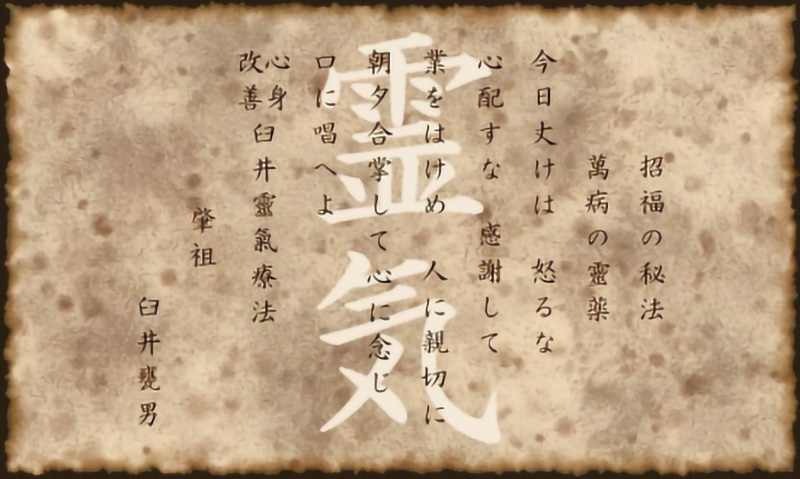 招福の秘法
萬病の靈薬
今日丈けは 怒るな
心配すな 感謝して
業をはけめ 人に親切に
朝夕合掌して心に念じ
口に唱へよ
心身
改善
臼井靈氣療法
肇祖
臼井甕男
霊気